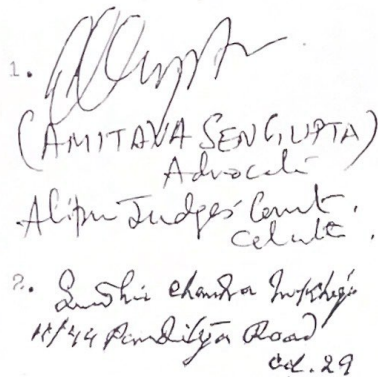 1.
(AMITAVA SENGUPTA)
Advocate
Alipur Judges' Court.
Calcutta.
2. Sudhir Chandra
11/44 Panditya Road
Cal. 29